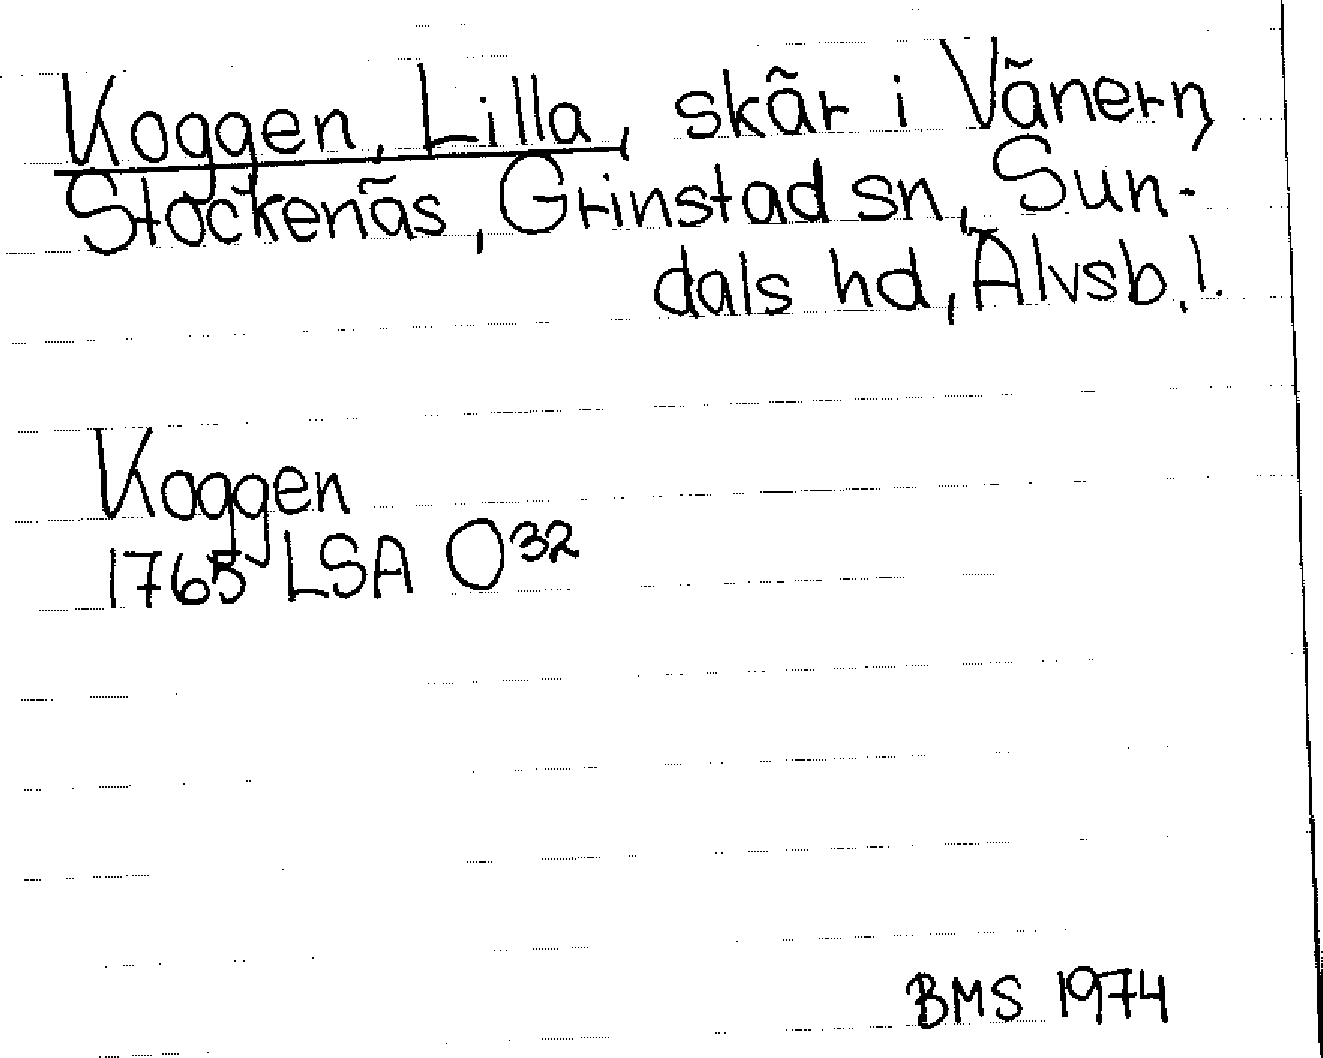 Koggen, Lilla, skär i Vänern,
Stockenäs, Grinstad sn, Sun-
dals hd, Älvsb.l.
Koggen
1765 LSA O32
BMS 1974